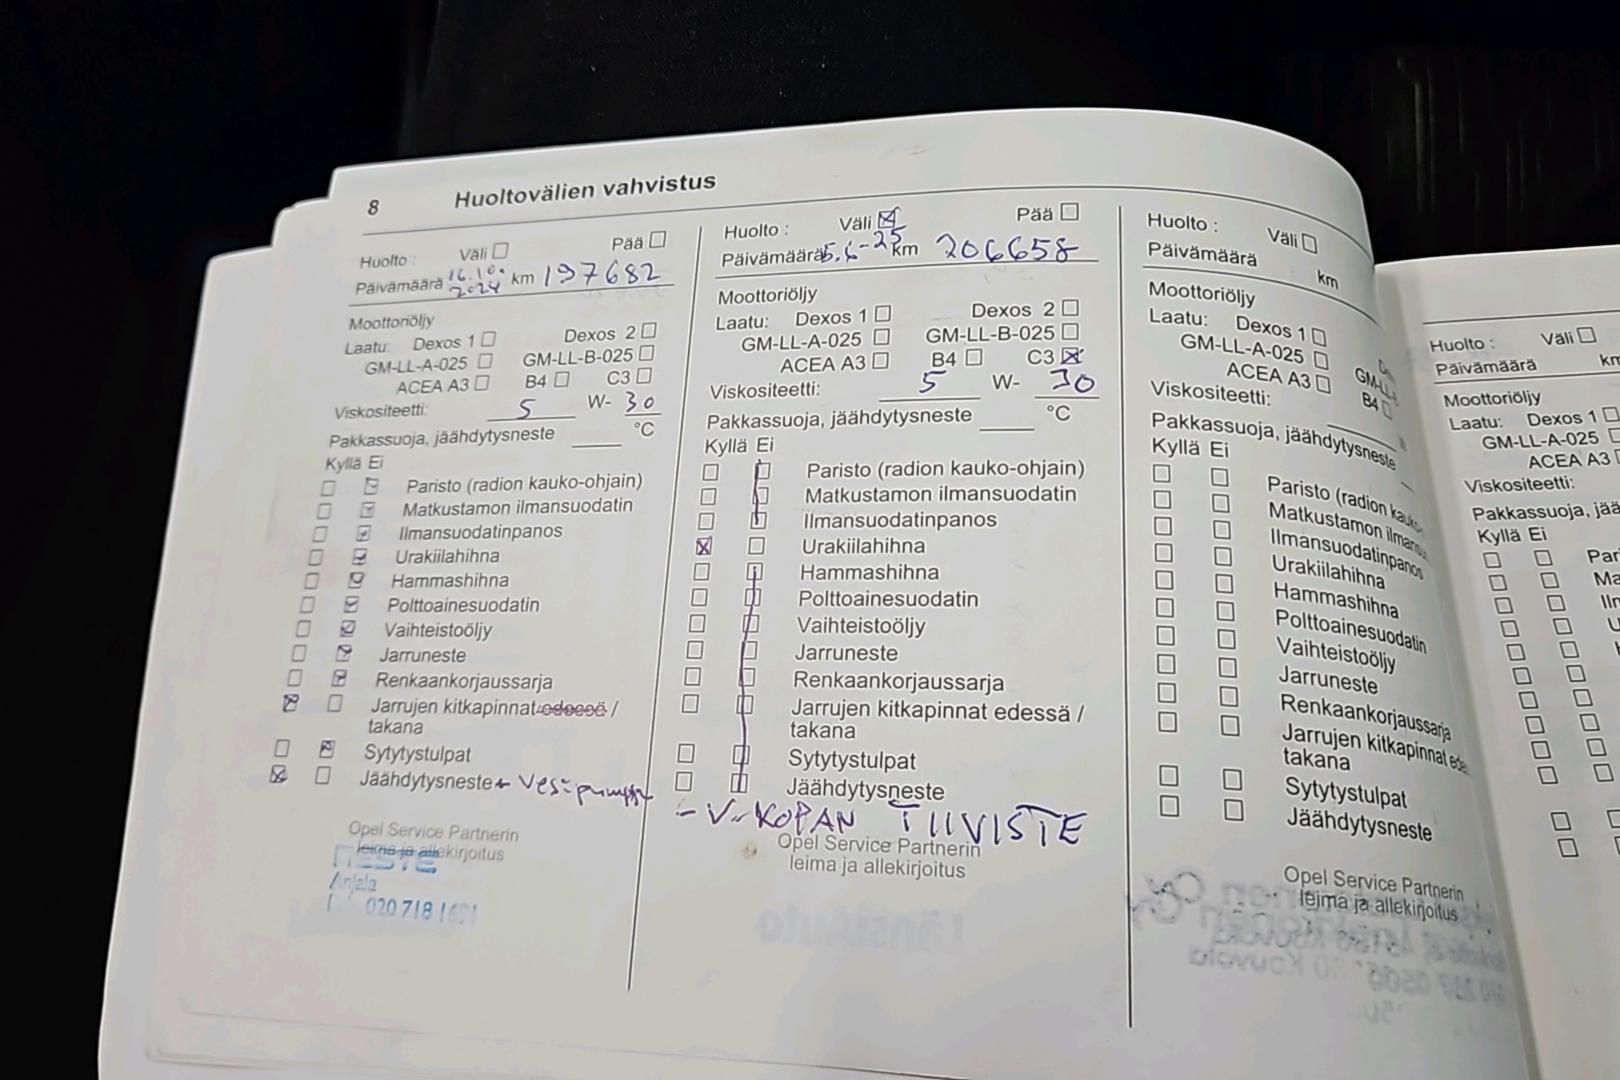 8 Huoltovälien vahvistus
Huolto : Väli Pää
Päivämäärä 16.10. 2024 km 197682
Moottoriöljy
Laatu: Dexos 1 Dexos 2
GM-LL-A-025 GM-LL-B-025
ACEA A3 B4 C3
Viskositeetti: 5 W- 30
Pakkassuoja, jäähdytysneste °C
Kyllä Ei
Paristo (radion kauko-ohjain)
Matkustamon ilmansuodatin
Ilmansuodatinpanos
Urakiilahihna
Hammashihna
Polttoainesuodatin
Vaihteistoöljy
Jarruneste
Renkaankorjaussarja
Jarrujen kitkapinnat edessä /
takana
Sytytystulpat
Jäähdytysneste + Vesipumppu
Opel Service Partnerin
leima ja allekirjoitus
NESTE
Anjala
020 718 1691
Huolto : Väli Pää
Päivämäärä 5.6-25 km 206658
Moottoriöljy
Laatu: Dexos 1 Dexos 2
GM-LL-A-025 GM-LL-B-025
ACEA A3 B4 C3
Viskositeetti: 5 W- 30
Pakkassuoja, jäähdytysneste °C
Kyllä Ei
Paristo (radion kauko-ohjain)
Matkustamon ilmansuodatin
Ilmansuodatinpanos
Urakiilahihna
Hammashihna
Polttoainesuodatin
Vaihteistoöljy
Jarruneste
Renkaankorjaussarja
Jarrujen kitkapinnat edessä /
takana
Sytytystulpat
Jäähdytysneste
- V-KOPAN TIIVISTE
Opel Service Partnerin
leima ja allekirjoitus
Huolto : Väli
Päivämäärä km
Moottoriöljy
Laatu: Dexos 1
GM-LL-A-025
ACEA A3 B4
Viskositeetti:
Pakkassuoja, jäähdytysneste
Kyllä Ei
Paristo (radion
Matkustamon
Ilmansuodatinpanos
Urakiilahihna
Hammashihna
Polttoainesuodatin
Vaihteistoöljy
Jarruneste
Renkaankorjaussarja
Jarrujen kitkapinnat
takana
Sytytystulpat
Jäähdytysneste
Opel Service Partnerin
leima ja allekirjoitus
Huolto : Väli
Päivämäärä km
Moottoriöljy
Laatu: Dexos 1
GM-LL-A-025
ACEA A3
Viskositeetti:
Pakkassuoja,
Kyllä Ei